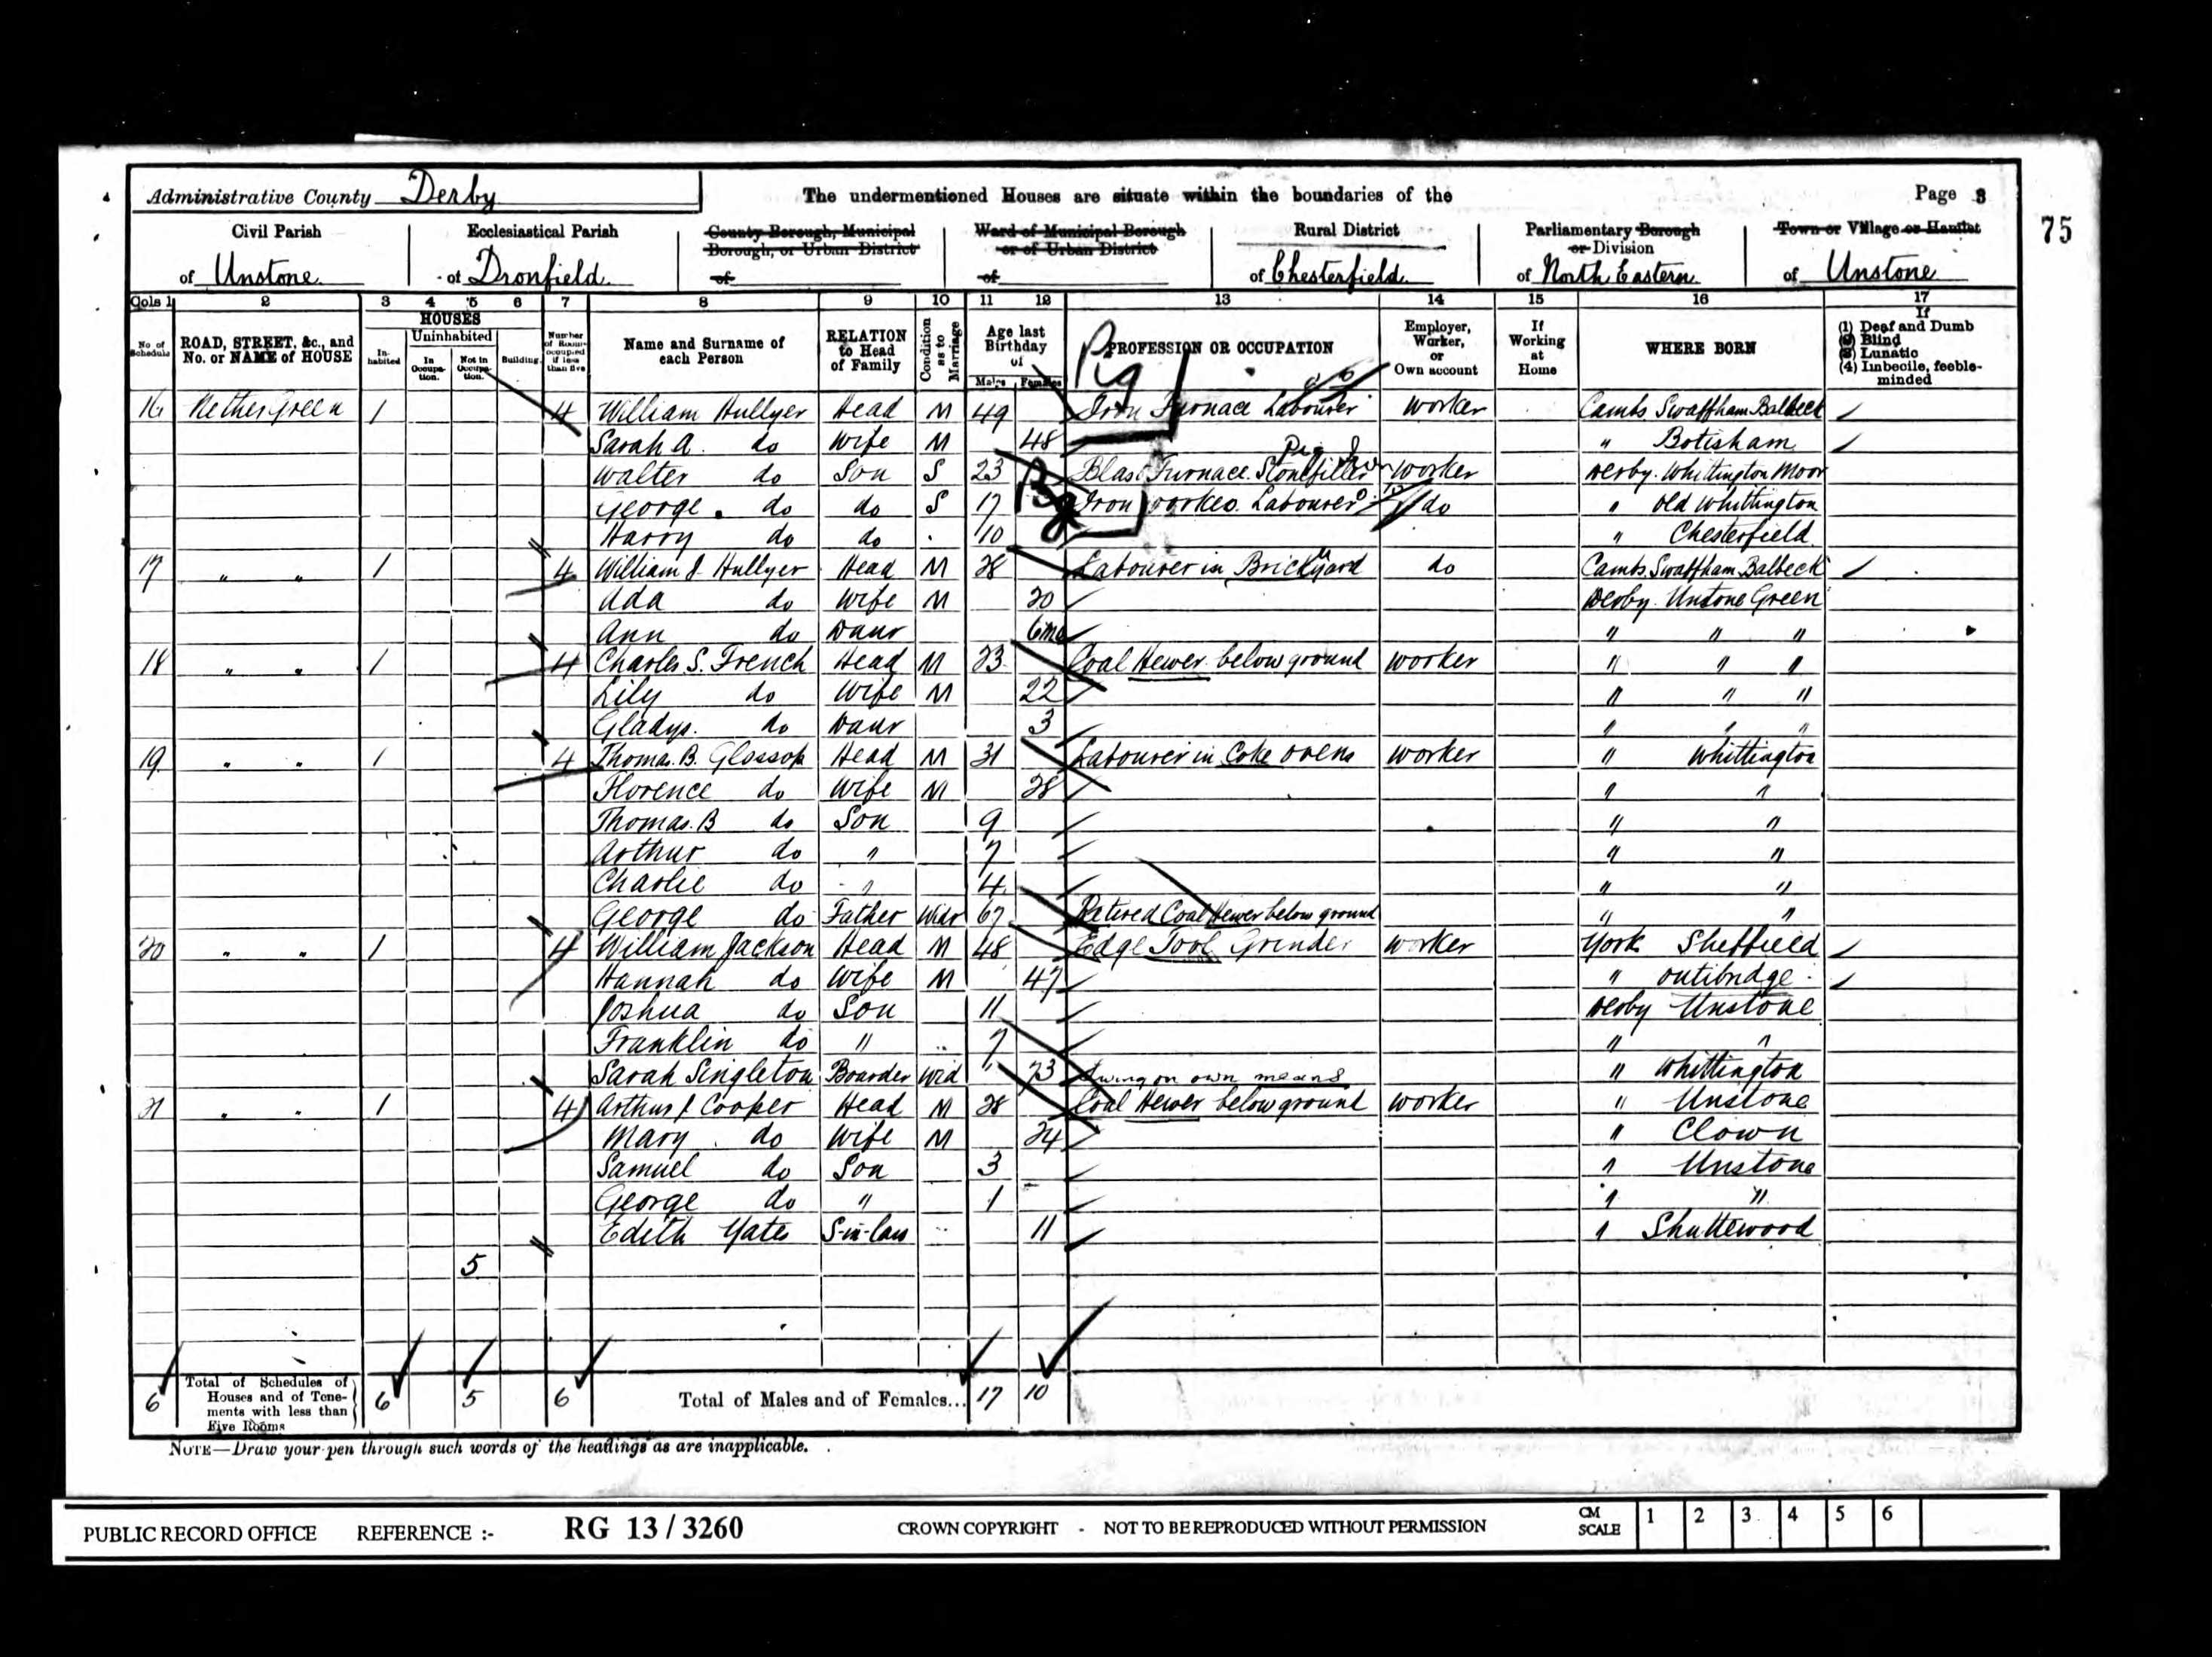 Administrative County Derby The undermentioned Houses are situate within the boundaries of the Page 3
75
Civil Parish Ecclesiastical Parish County Borough, Municipal Borough, or Urban District Ward of Municipal Borough or of Urban District Rural District Parliamentary Borough or Division Town or Village or Hamlet
of Unstone of Dronfield of of of Chesterfield of North Eastern of Unstone
Cols 1 2 3 4 5 6 7 8 9 10 11 12 13 14 15 16 17
No. of Schedule ROAD, STREET, &c., and No. or NAME of HOUSE HOUSES Inhabited Uninhabited In Occupation. Not in Occupation. Building. Number of Rooms occupied if less than five Name and Surname of each Person RELATION to Head of Family Condition as to Marriage Age last Birthday of Males Females PROFESSION OR OCCUPATION Employer, Worker, or Own account If Working at Home WHERE BORN If (1) Deaf and Dumb (2) Blind (3) Lunatic (4) Imbecile, feeble-minded
Pig
16 Nether Green 1 4 William Hullyer Head M 49 Iron Furnace Labourer worker Cambs. Swaffham Balbeck
Sarah A. do Wife M 48 " Botisham
Pig Iron
Walter do Son S 23 Blast Furnace Stonefiller worker Derby. Whittington Moor
Pig
George do do S 17 Iron workes Labourer do " Old Whittington
Harry do do 10 " Chesterfield
17 " " 1 4 William J. Hullyer Head M 28 Labourer in Brickyard do Cambs. Swaffham Balbeck
Ada do Wife M 20 Derby. Unstone Green
Ann do Daur 6mo " " "
18 " " 1 4 Charles S. French Head M 23 Coal Hewer below ground worker " " "
Lily do Wife M 22 " " "
Gladys. do Daur 3 " " "
19 " " 1 4 Thomas B. Glossop Head M 31 Labourer in Coke ovens worker " Whittington
Florence do Wife M 28 " "
Thomas B do Son 9 " "
Arthur do " 7 " "
Charlie do " 4 " "
George do Father Widr 67 Retired Coal Hewer below ground " "
20 " " 1 4 William Jackson Head M 48 Edge Tool Grinder worker York Sheffield
Hannah do Wife M 47 " Outibridge
Joshua do Son 11 Derby Unstone
Franklin do " 7 " "
Sarah Singleton Boarder Wid 73 Living on own means " Whittington
21 " " 1 4 Arthur J Cooper Head M 28 Coal Hewer below ground worker " Unstone
Mary do Wife M 24 " Clown
Samuel do Son 3 " Unstone
George do " 1 " "
Edith Yates S-in-law 11 " Shuttewood
5
6 Total of Schedules of Houses and of Tenements with less than Five Rooms 6 5 6 Total of Males and of Females... 17 10
NOTE—Draw your pen through such words of the headings as are inapplicable.
PUBLIC RECORD OFFICE REFERENCE :- RG 13 / 3260 CROWN COPYRIGHT - NOT TO BE REPRODUCED WITHOUT PERMISSION CM SCALE 1 2 3 4 5 6